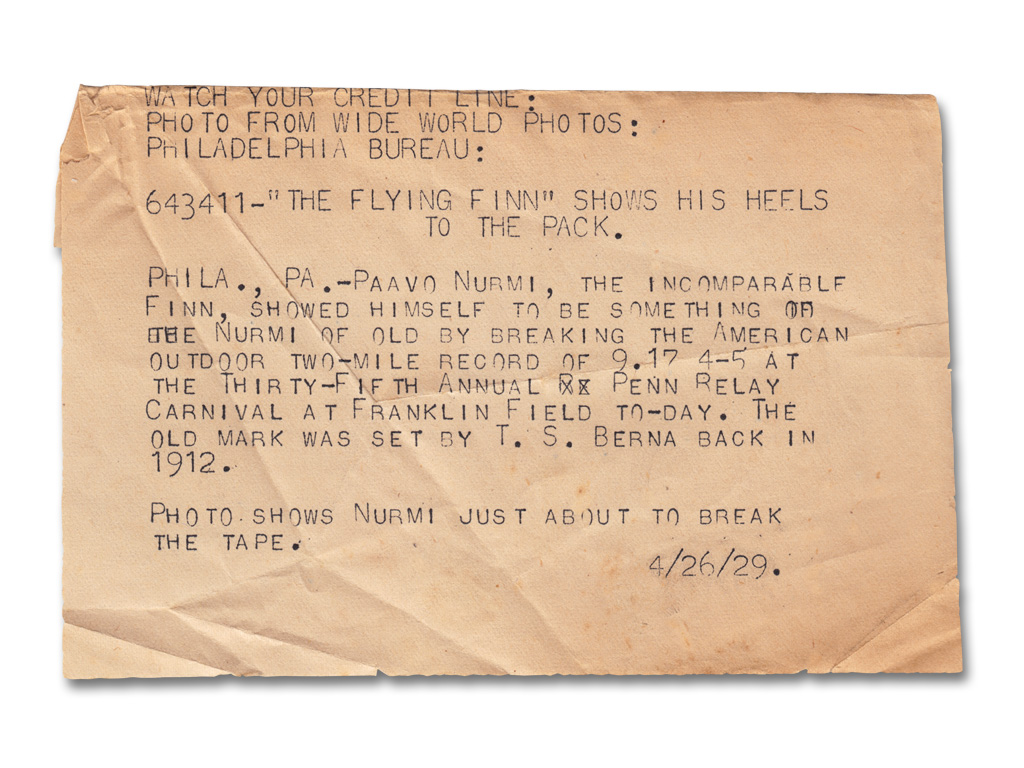 WATCH YOUR CREDIT LINE:
PHOTO FROM WIDE WORLD PHOTOS:
PHILADELPHIA BUREAU:
643411-"THE FLYING FINN" SHOWS HIS HEELS
TO THE PACK.
PHILA., PA.-PAAVO NURMI, THE INCOMPARABLE
FINN, SHOWED HIMSELF TO BE SOMETHING OF
THE NURMI OF OLD BY BREAKING THE AMERICAN
OUTDOOR TWO-MILE RECORD OF 9.17 4-5 AT
THE THIRTY-FIFTH ANNUAL PENN RELAY
CARNIVAL AT FRANKLIN FIELD TO-DAY. THE
OLD MARK WAS SET BY T. S. BERNA BACK IN
1912.
PHOTO SHOWS NURMI JUST ABOUT TO BREAK
THE TAPE.
4/26/29.